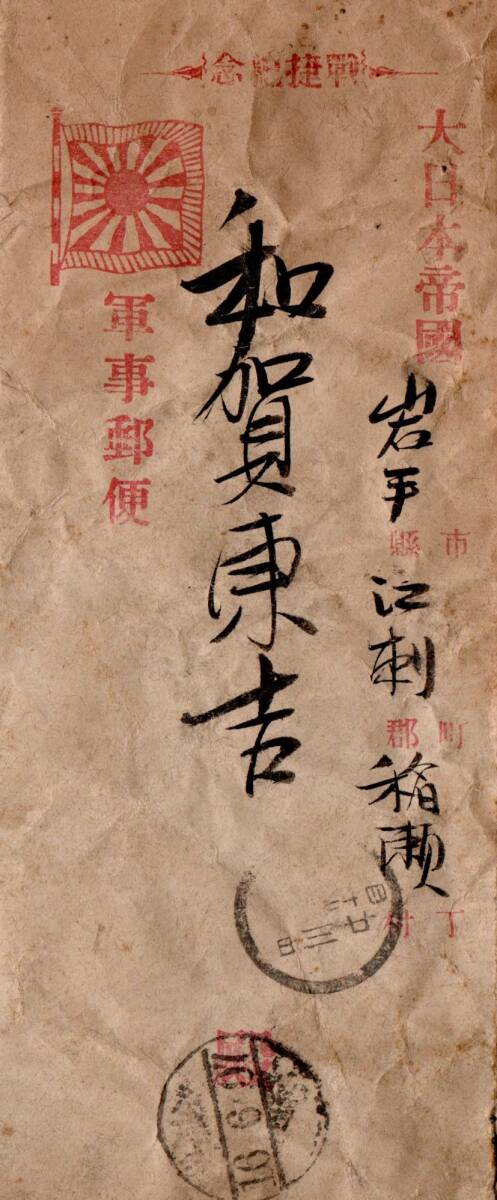 戰捷紀念
大日本帝國
岩手縣 市
江刺郡 町
稲瀬村 丁
和賀東吉
軍事郵便
殿
16.9.91